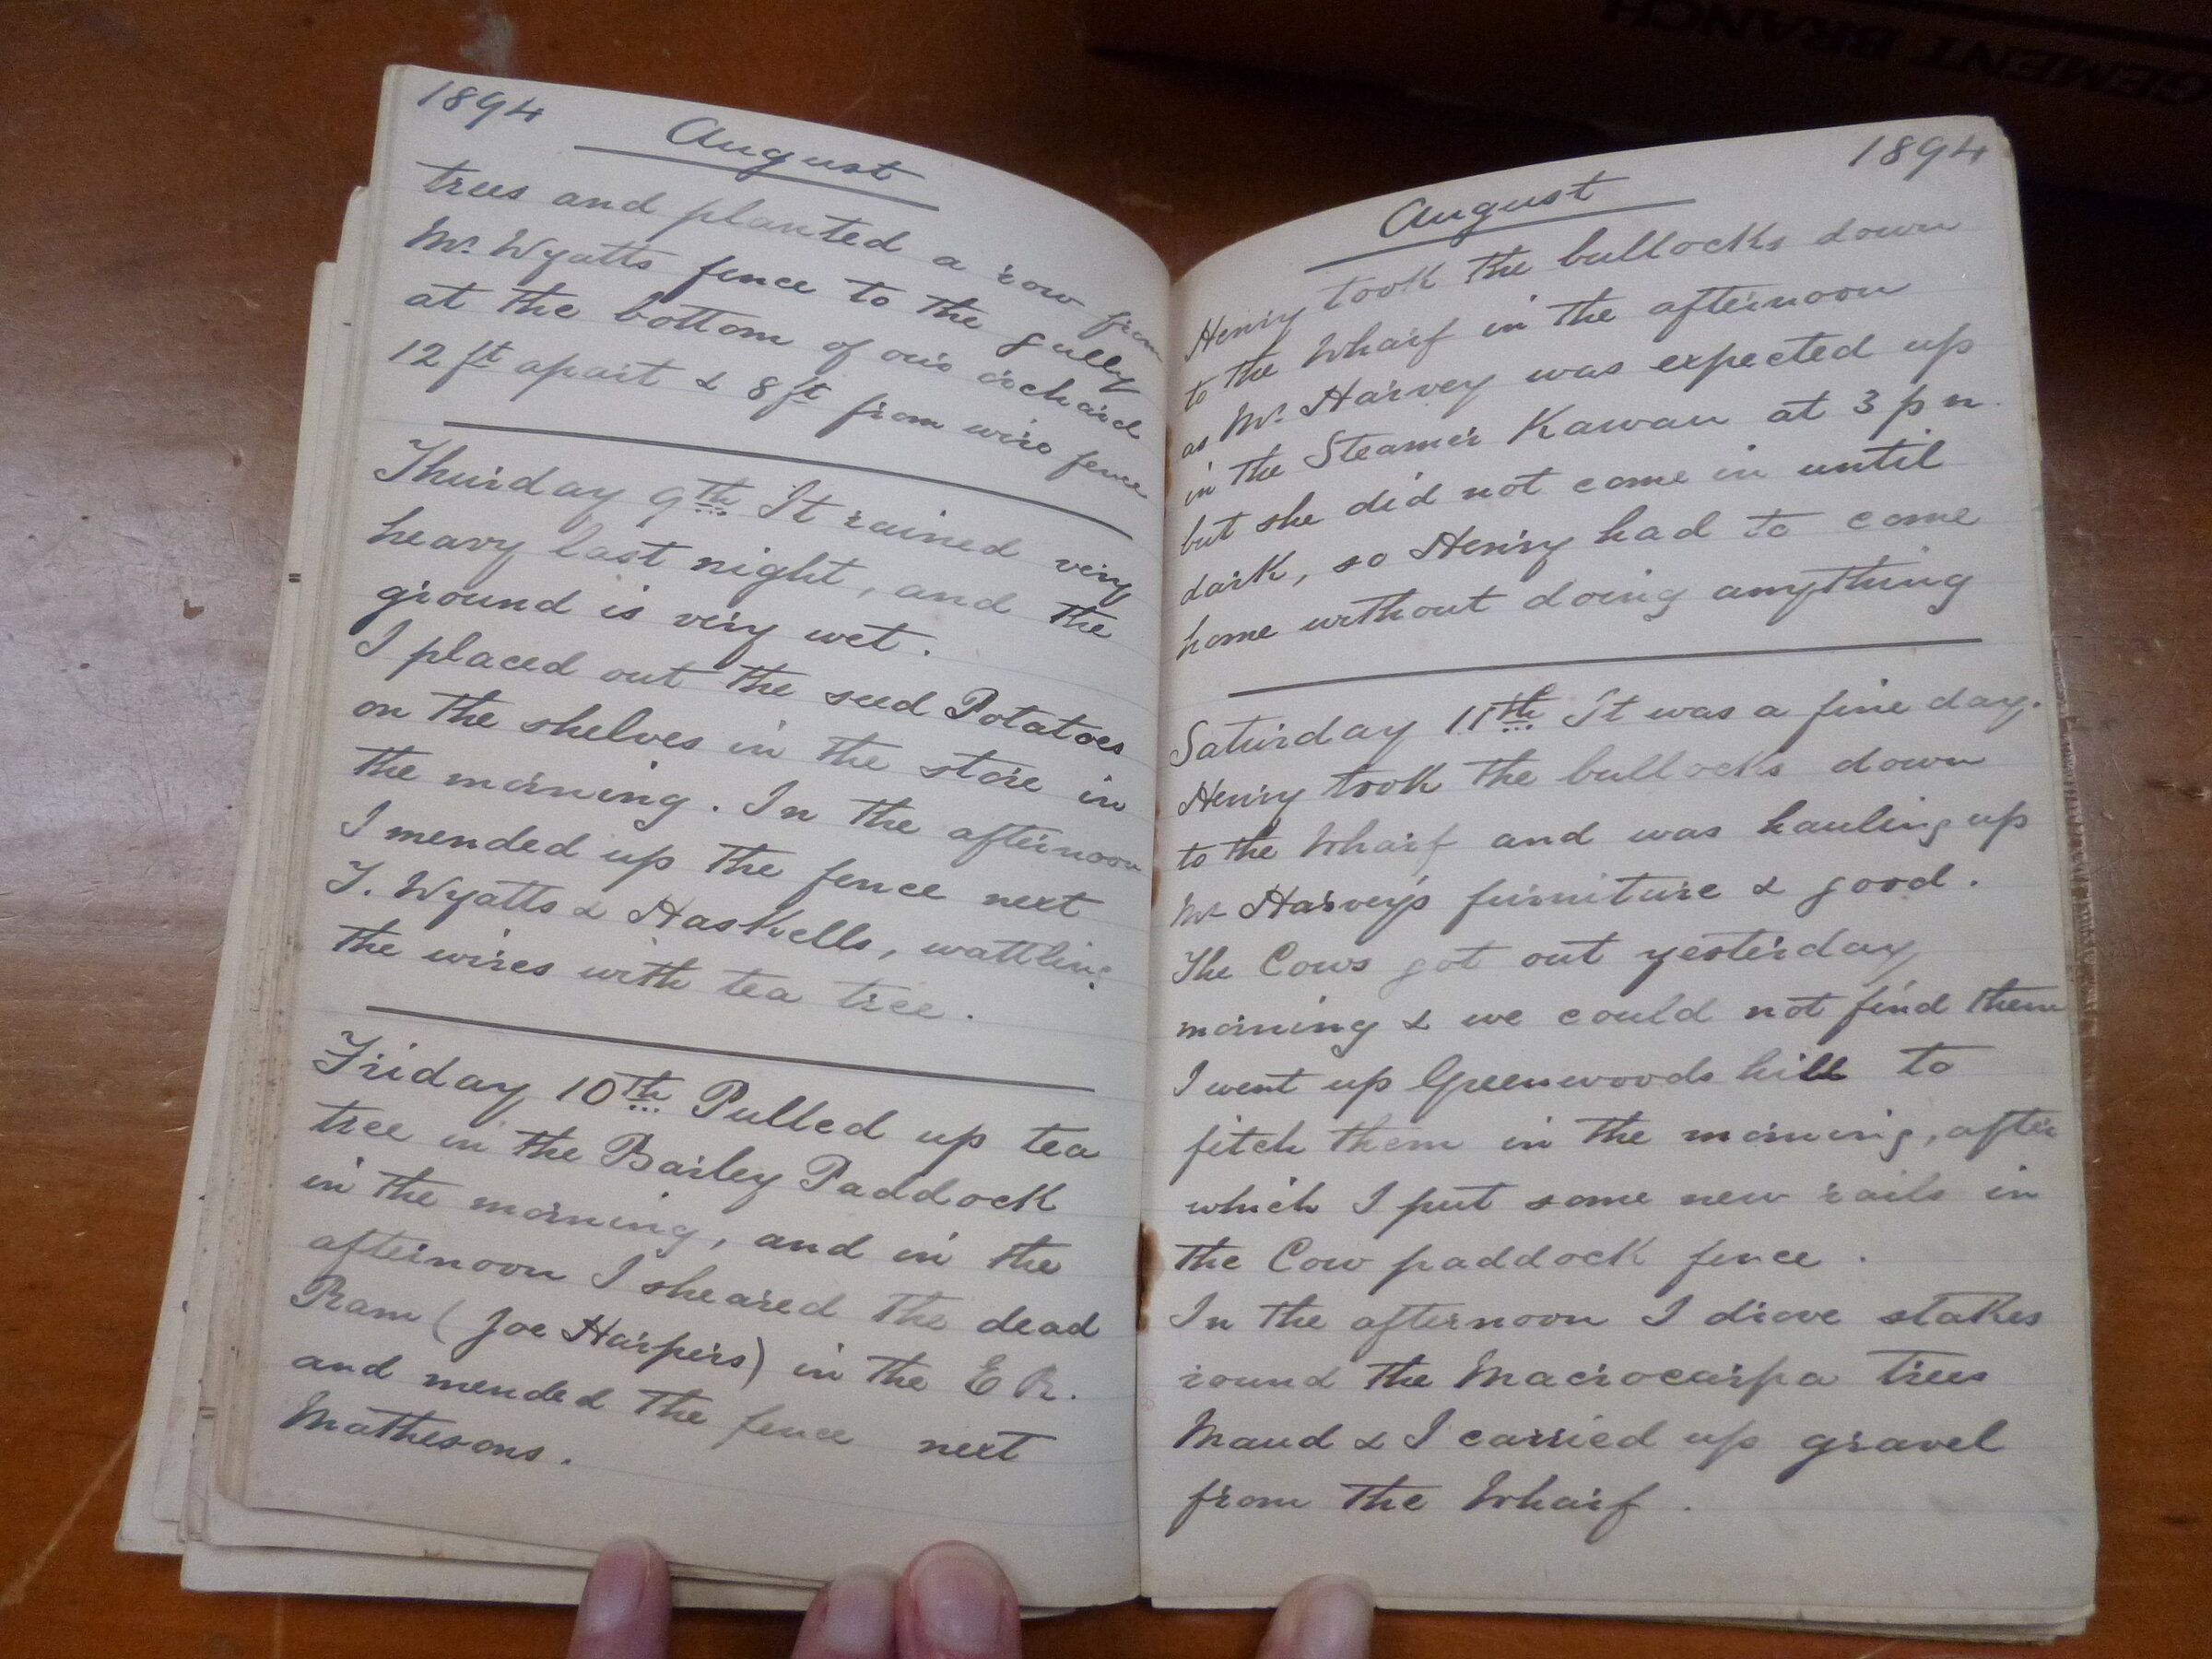 GEMENT BRANCH
1894
August
trees and planted a row from
Mr. Wyatts fence to the gully
at the bottom of our orchard
12 ft apart & 8 ft from wire fence
Thursday 9th It rained very
heavy last night, and the
ground is very wet.
I placed out the seed Potatoes
on the shelves in the store in
the morning. In the afternoon
I mended up the fence next
T. Wyatts & Haskells, wattling
the wires with tea tree.
Friday 10th Pulled up tea
tree in the Bailey Paddock
in the morning, and in the
afternoon I sheared the dead
Ram (Joe Harpers) in the E R.
and mended the fence next
Mathesons.
1894
August
Henry took the bullocks down
to the Wharf in the afternoon
as Mr. Harvey was expected up
in the Steamer Kawau at 3 p m.
but she did not come in until
dark, so Henry had to come
home without doing anything
Saturday 11th It was a fine day.
Henry took the bullocks down
to the Wharf and was hauling up
Mr Harvey's furniture & good.
The Cows got out yesterday
morning & we could not find them
I went up Greenwoods hill to
fitch them in the morning, after
which I put some new rails in
the Cow paddock fence.
In the afternoon I drove stakes
round the Macrocarpa trees
Maud & I carried up gravel
from the Wharf.